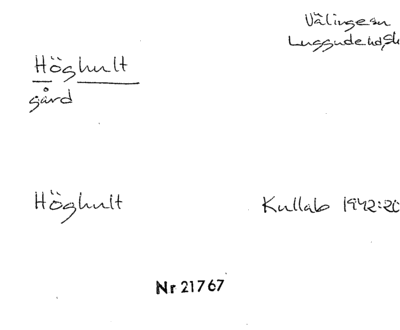 Välinge sn
Luggude hd, Sk
Höghult
gård
Höghult
Kullab 1942:20
Nr 21767